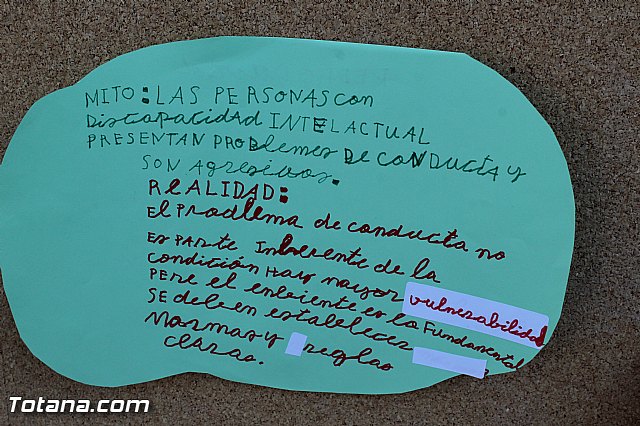 MITO: LAS PERSONAS con
DiscapaciDad INTELACTUAL
PRESENTAN PROblemes DE coNDUCTA y
SON Agresivos.
REALIDAD:
El PRoblema de conducta no
Es PARTE Inherente de la
condición Hay mayor vulnerabilidad
PERE el enbiente es la Fundamental
SE deben establecer
Normas y reglas
claras.
Totana.com